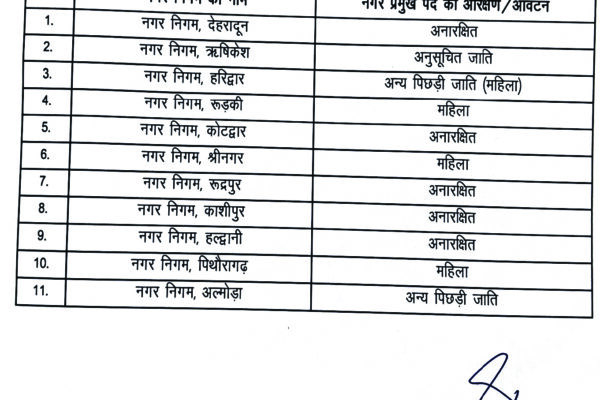 नगर निगम का नाम नगर प्रमुख पद का आरक्षण/आवंटन
1. नगर निगम, देहरादून अनारक्षित
2. नगर निगम, ऋषिकेश अनुसूचित जाति
3. नगर निगम, हरिद्वार अन्य पिछड़ी जाति (महिला)
4. नगर निगम, रूड़की महिला
5. नगर निगम, कोटद्वार अनारक्षित
6. नगर निगम, श्रीनगर महिला
7. नगर निगम, रूद्रपुर अनारक्षित
8. नगर निगम, काशीपुर अनारक्षित
9. नगर निगम, हल्द्वानी अनारक्षित
10. नगर निगम, पिथौरागढ़ महिला
11. नगर निगम, अल्मोड़ा अन्य पिछड़ी जाति